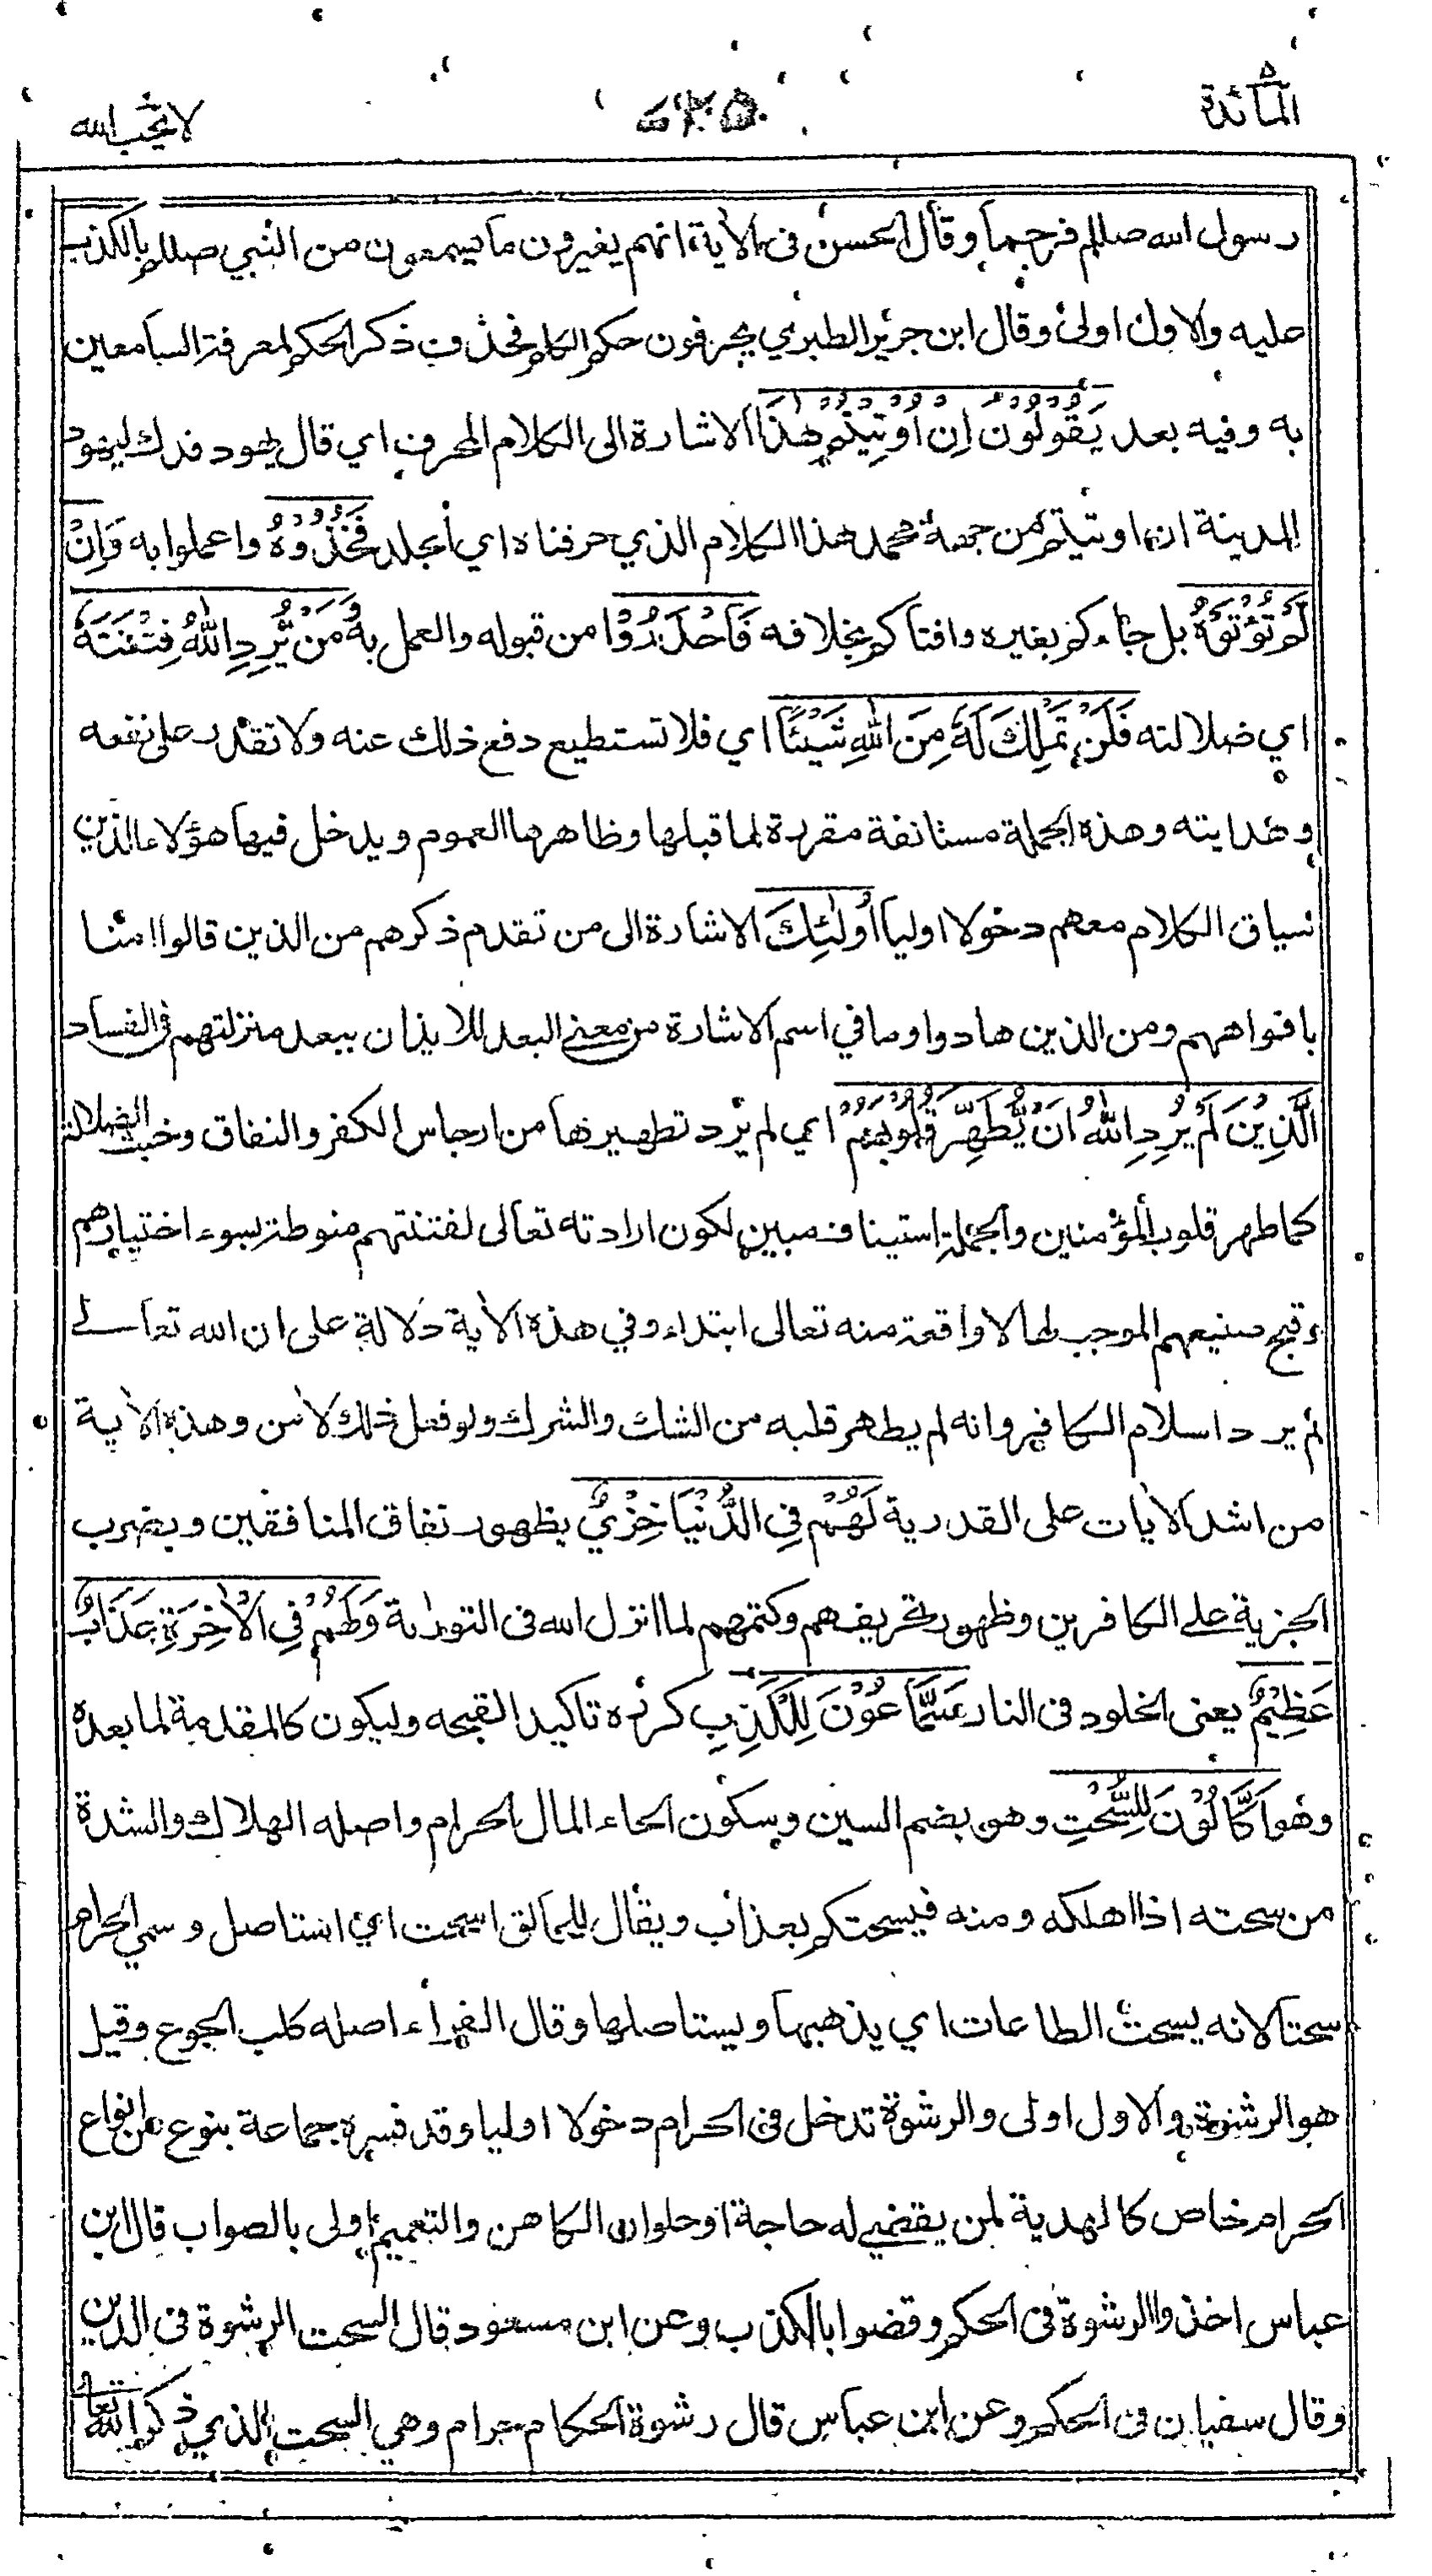 المآئدة
لا يحب الله
رسول الله صللم فرجما وقال الحسن فى الاية انهم يغيرون ما يسمعون من النبي صللم بالكذب
عليه والاول اولى وقال ابن جرير الطبري يحرفون حكم الكلم فحذف ذكر الحكم لمعرفة السامعين
به وفيه بعد يَقُوْلُوْنَ اِنْ اُوْتِيْتُمْ هٰذَا الاشارة الى الكلام المحرف اي قال يهود فدك ليهود
المدينة ان اوتيتم من جهة محمد هذا الكلام الذي حرفناه اي الجلد فَخُذُوْهُ واعملوا به وَاِنْ
لَّمْ تُؤْتَوْهُ بل جاءكم بغيره وافتاكم بخلافه فَاحْذَرُوْا من قبوله والعمل به وَمَنْ يُّرِدِ اللّٰهُ فِتْنَتَهٗ
اي ضلالته فَلَنْ تَمْلِكَ لَهٗ مِنَ اللّٰهِ شَيْئًا اي فلا تستطيع دفع ذلك عنه ولا تقدر على نفعه
وهدايته وهذه الجملة مستانفة مقررة لما قبلها وظاهرها العموم ويدخل فيها هؤلاء الذين
سياق الكلام معهم دخولا اوليا اُولٰٓئِكَ الاشارة الى من تقدم ذكرهم من الذين قالوا امنا
بافواههم ومن الذين هادوا وما في اسم الاشارة من معنى البعد للايذان ببعد منزلتهم فى الفساد
الَّذِيْنَ لَمْ يُرِدِ اللّٰهُ اَنْ يُّطَهِّرَ قُلُوْبَهُمْ اي لم يرد تطهيرها من ارجاس الكفر والنفاق وخبث الضلالة
كما طهر قلوب المؤمنين والجملة استيناف مبين لكون ارادته تعالى لفتنتهم منوطة بسوء اختيارهم
وقبح صنيعهم الموجب لها لا واقعة منه تعالى ابتداء وفي هذه الاية دلالة على ان الله تعالى
لم يرد اسلام الكافر وانه لم يطهر قلبه من الشك والشرك ولو فعل ذلك لامن وهذه الاية
من اشد الايات على القدرية لَهُمْ فِي الدُّنْيَا خِزْيٌ بظهور نفاق المنافقين وبضرب
الجزية على الكافرين وظهور تحريفهم وكتمهم لما انزل الله فى التوراة وَلَهُمْ فِي الْاٰخِرَةِ عَذَابٌ
عَظِيْمٌ يعنى الخلود فى النار سَمَّاعُوْنَ لِلْكَذِبِ كرره تاكيدا لقبحه وليكون كالمقدمة لما بعده
وهو اَكَّالُوْنَ لِلسُّحْتِ وهو بضم السين وسكون الحاء المال الحرام واصله الهلاك والشدة
من سحته اذا اهلكه ومنه فيسحتكم بعذاب ويقال للحالق اسحت اي استاصل وسمي الحرام
سحتا لانه يسحت الطاعات اي يذهبها ويستاصلها وقال الفراء اصله كلب الجوع وقيل
هو الرشوة والاول اولى والرشوة تدخل فى الحرام دخولا اوليا وقد فسره جماعة بنوع من انواع
الحرام خاص كالهدية لمن يقضي له حاجة او حلوان الكاهن والتعميم اولى بالصواب قال ابن
عباس اخذوا الرشوة فى الحكم وقضوا بالكذب وعن ابن مسعود قال السحت الرشوة فى الدين
وقال سفيان فى الحكم وعن ابن عباس قال رشوة الحكام حرام وهي السحت الذي ذكر الله تعالى